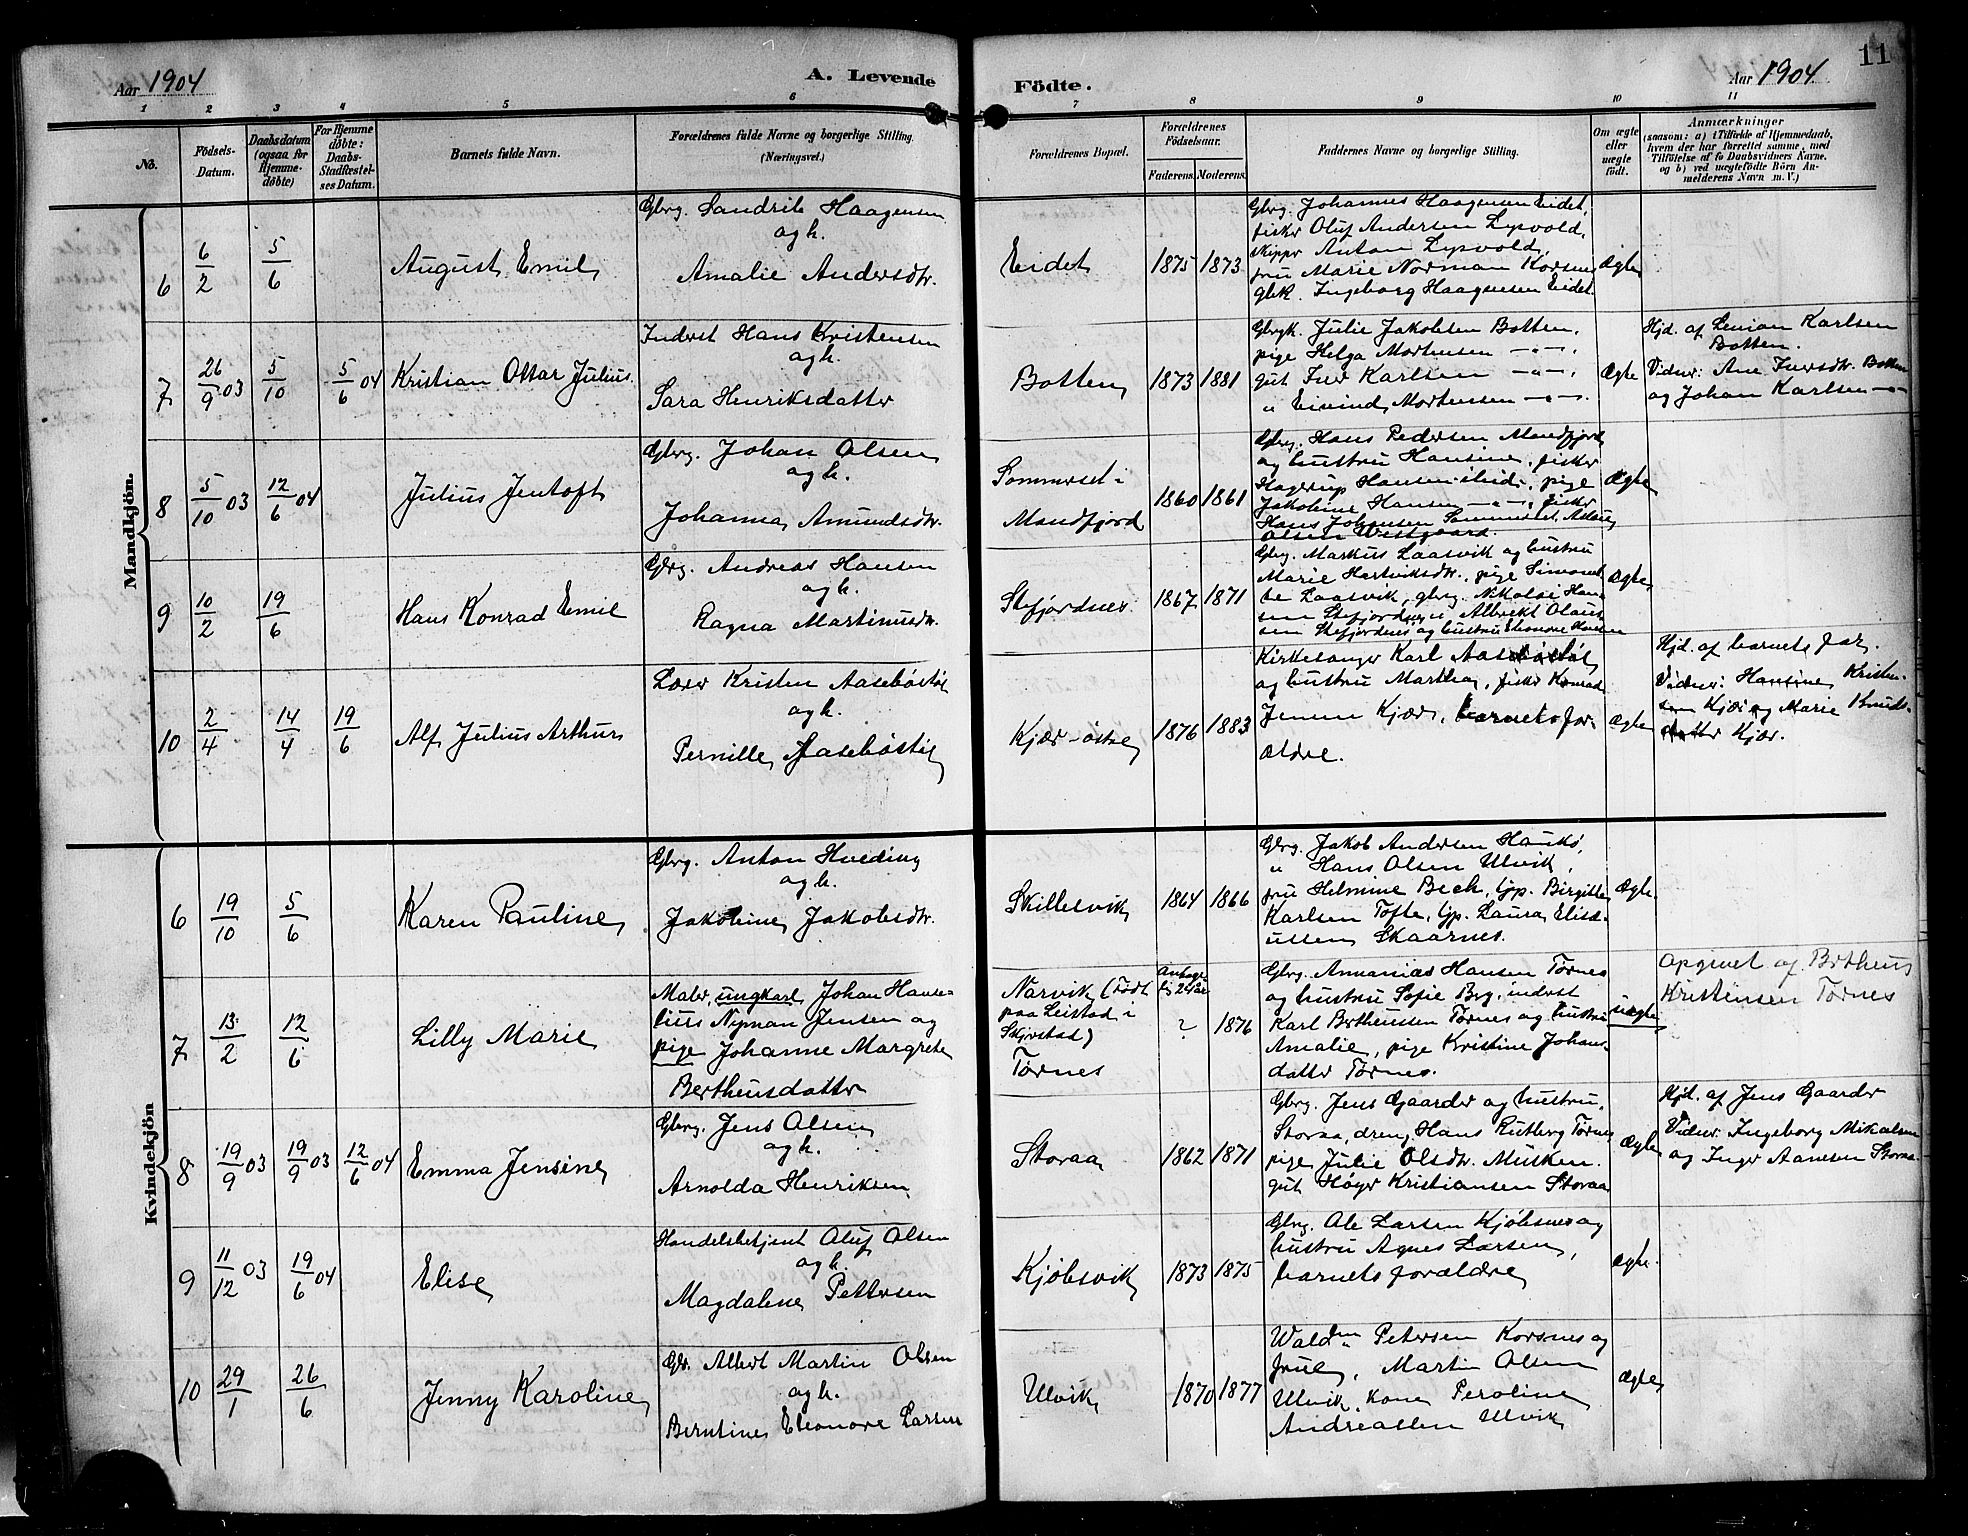 11
Aar 1904
A. Levende
Födte.
Aar 1904
1 2 3 4 5 6 7 8 9 10 11
No.
Födsels-
Datum.
Daabsdatum
(ogsaa for
Hjemme-
døbte)
For Hjemme
døbte:
Daabs-
Stadfæstel-
ses Datum.
Barnets fulde Navn.
Forældrenes fulde Navne og borgerlige Stilling.
(Næringsvei.)
Forældrenes Bopæl.
Forældrenes
Födselsaar.
Faderens. Moderens.
Faddernes Navne og borgerlige Stilling.
Om ægte
eller
uægte
födt.
Anmærkninger
(saasom: a) i Tilfælde af Hjemmedaab,
hvem der har forrettet samme, med
Tilföielse af to Daabsvidners Navne.
og b) ved uægtefödte Börn An-
melderens Navn m. V.)
Mandkjön.
6
6/2
5/6
August Emil
Gbrg. Sandrik Haagensen
og h.
Amalie Andersdtr.
Eidet
1875 1873
Gbrg. Johannes Haagensen Eidet,
fisker Oluf Andersen Lysvold,
skipper Anton Lysvold,
fru Marie Norman Korsnes
gbk. Ingeborg Haagensen Eidet.
Ægte
7
26/9 03
5/10
5/6 04
Kristian Ottar Julius.
Inderst Hans Kristensen
og h.
Sara Henriksdatter
Botten
1873 1881
Gbrgk. Julie Jakobsen Botten,
pige Helga Mortensen —"—,
gut Iver Karlsen —"—,
" Eivind Mortensen —"—.
Ægte
Hjd. af Karlsen
Botten.
Vidner: Ane Iversdtr. Botten
og Johan Karlsen —"—
8
5/10 03
12/6 04
Julius Jentoft
Gbrg. Johan Olsen
og h.
Johanna Amundsdtr.
Sommerset i
Mandfjord
1860 1861
Gbrg. Hans Pedersen Mandfjord
og hustru Hansine, fisker
Hagerup Hansen ibid., pige
Jakobine Hansen —"—, fisker
Hans Johansen Sommerset,
Olsen Westgaard.
Ægte
9
10/2
19/6
Hans Konrad Emil
Gbrg. Andreas Hansen
og h.
Ragna Martinusdtr.
Stefjordnes.
1867 1871
Gbrg. Markus Laasvik og hustru
Marie Hartviksdtr., pige Simonet-
te Laasvik, gbrg. Nikolai Han-
sen Stefjordnes, Albrekt Olaus-
sen Stefjordnes og hustru Eleonore Hansen
Ægte
10
2/4
14/4
19/6
Alf Julius Arthur
Lærer Kristen Aasebøstøl
og h.
Pernille Aasebøstøl
Kjær-østre
1876 1883
Kirkesanger Karl Aasebøstøl
og hustru Martha, fisker Konrad
Jensen Kjær, barnets for-
ældre.
Ægte
Hjd. af barnets far.
Vidner: Hansine Kristen-
sen Kjær og Marie Knuds-
datter Kjær.
Kvindekjön
6
19/10
5/6
Karen Pauline
Gbrg. Anton Hveding
og h.
Jakobine Jakobsdtr.
Skillesvik
1864 1866
Gbrg. Jakob Andersen Haukø,
" Hans Olsen Ulvik,
fru Helmine Bech, tjp. Birgitte
Karlsen Tofte, tjp. Laura Elise-
ussen Skaarnes.
Ægte.
7
13/2
12/6
Lilly Marie
Maler, ungkarl Johan Hanse-
tius Nyman Jensen og
pige Johanne Margrete
Bertheusdatter
Narvik (Født
paa Leistad i
Skjerstad)
Tørnes
antage-
lig 24 år
? 1876
Gbrg. Annanias Hansen Tørnes
og hustru Sofie Brg, inderst
Karl Bertheussen Tørnes og hustru
Amalie, pige Kristine Johans-
datter Tørnes.
uægte
Opgivet af Bertheus
Kristensen Tørnes
8
19/9 03
19/9 03
12/6 04
Emma Jensine
Gbrg. Jens Olsen
og h.
Arnolda Henriksen
Storaa
1862 1871
Gbrg. Jens Gaarder og hustru,
Storaa, dreng Hans Rutberg Tørnes
pige Julie Olsdtr. Musken.
gut Høyer Kristiansen Storaa
Ægte
Hjd. af Jens Gaarder
Vidner: Ingeborg Mikalsen
og Inger Aanesen Storaa.
9
11/12 03
19/6 04
Elise
Handelsbetjent Oluf Olsen
og h.
Magdalene Pettersen
Kjøbsvik
1873 1875
Gbrg. Ole Larsen Kjøbsnes og
hustru Agnes Larsen,
barnets forældre
Ægte.
10
29/1
26/6
Jenny Karoline
Gbr. Albert Martin Olsen
og h.
Berntine Eleonore Larsen
Ulvik
1870 1877
Petersen Korsnes og
frue, Martin Olsen
Ulvik, kone Peroline
Andreassen Ulvik
Ægte